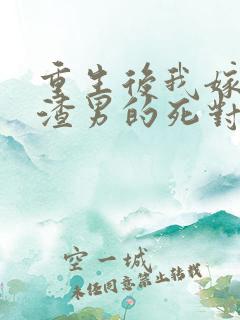 重生後我嫁
渣男的死對
空一城
未經同意禁止轉載